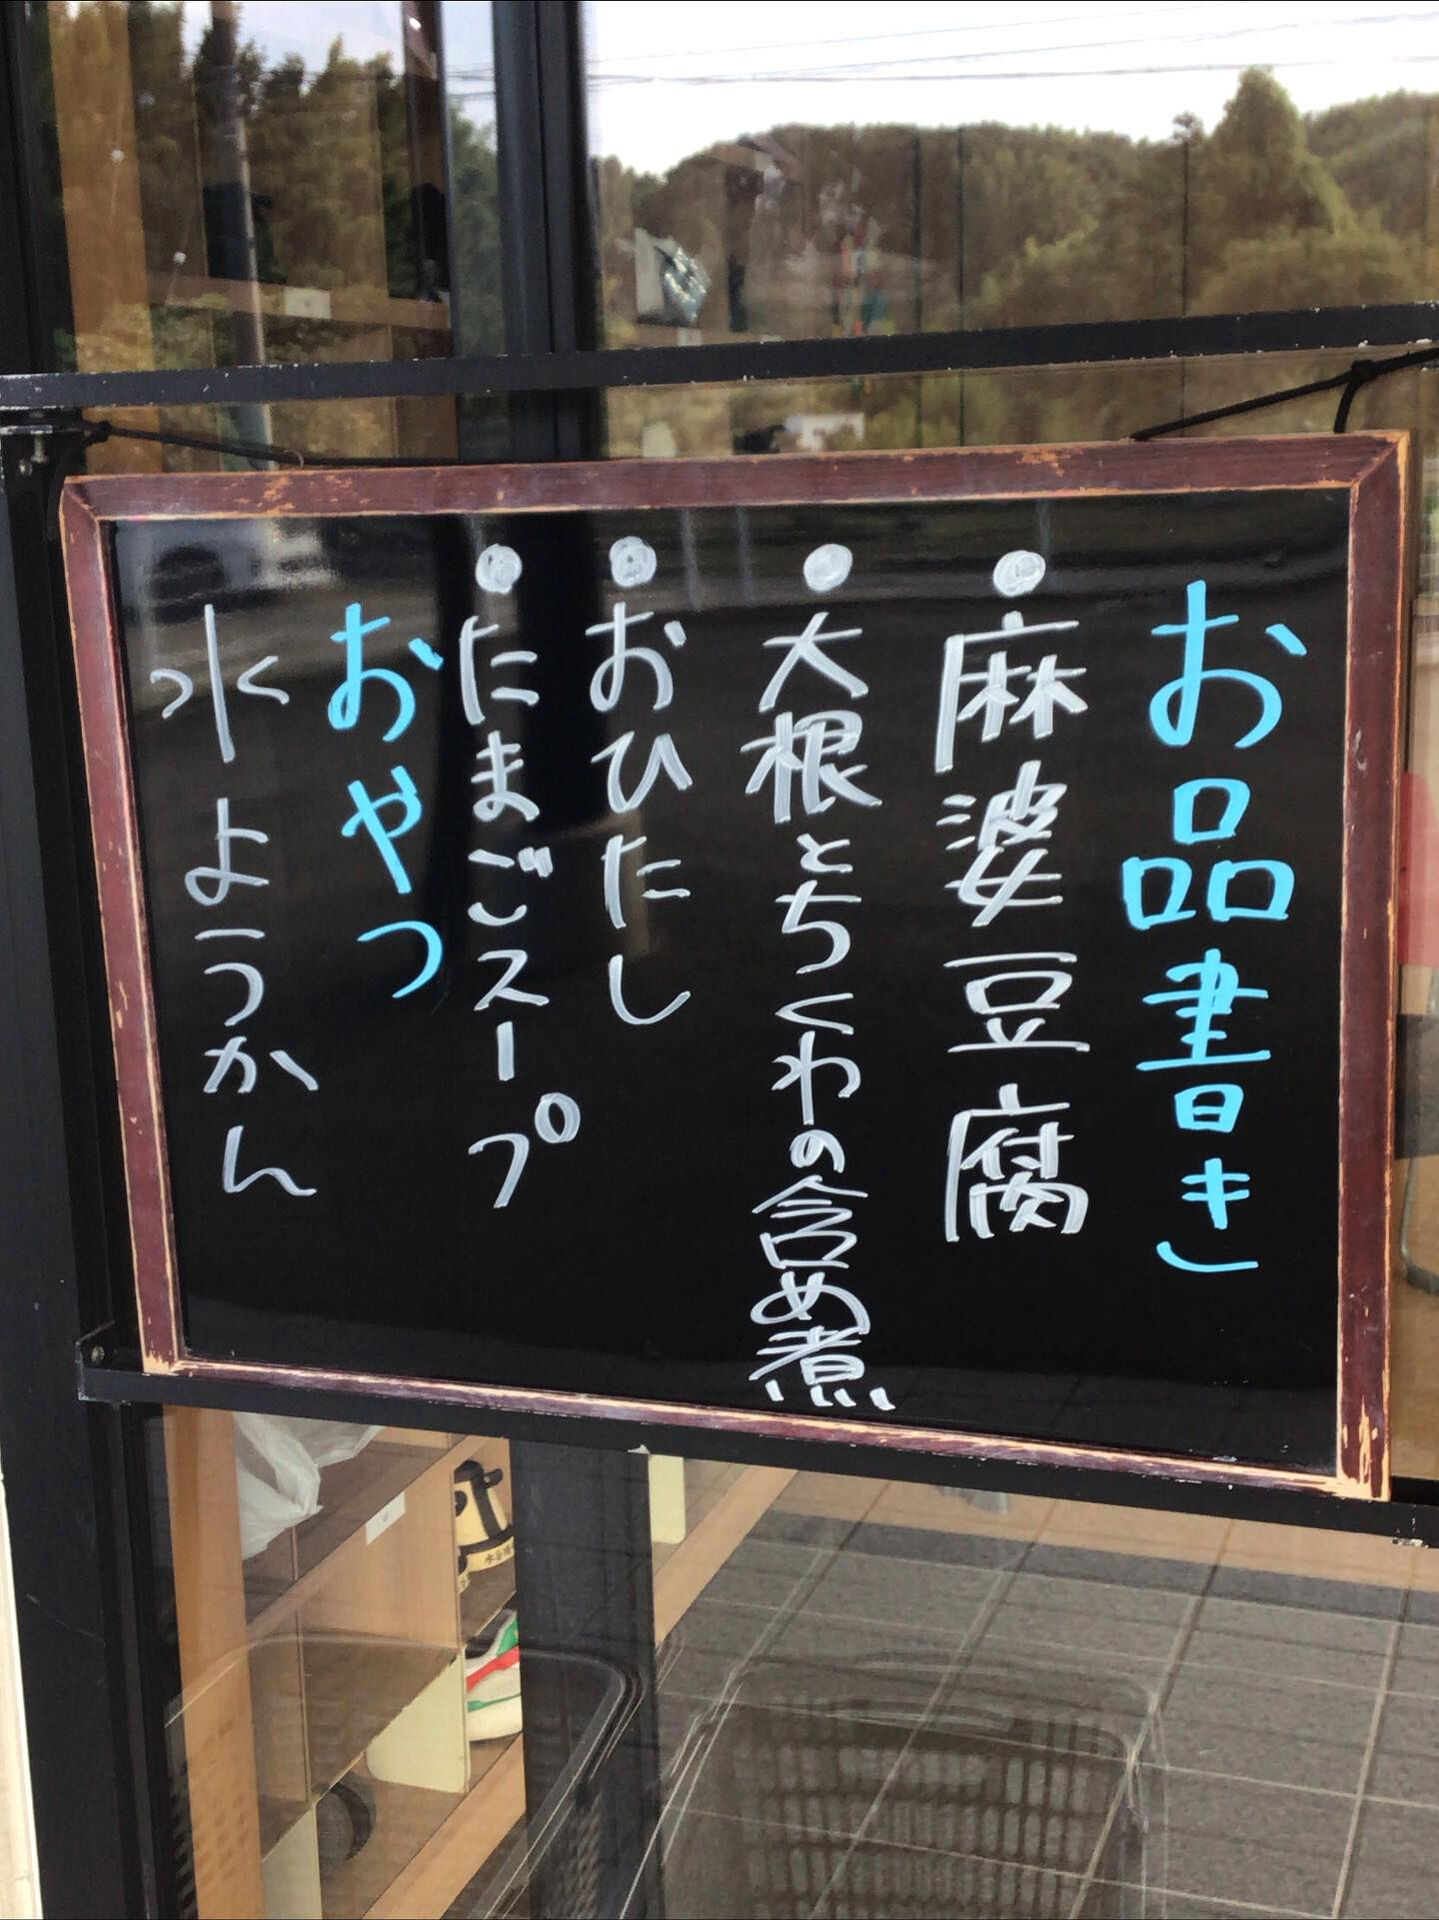 お品書き
●麻婆豆腐
●大根とちくわの含め煮
●おひたし
●たまごスープ
おやつ
水ようかん